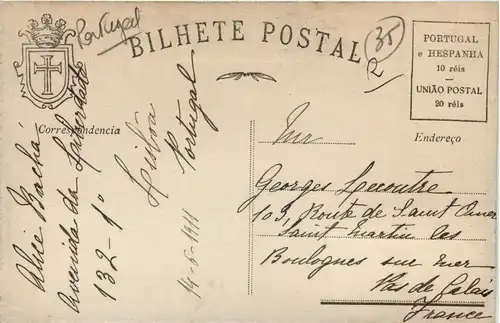 Portugal
BILHETE POSTAL
35
2
PORTUGAL
E HESPANHA
10 réis
—
UNIÃO POSTAL
20 réis
Correspondencia
Endereço
Alice Bachá
Avenida da Liberdade
132-1º
Lisbôa
Portugal
14-6-1911
Mr
Georges Lecoutre
103, Route de Saint Omer
Saint Martin les
Boulognes sur mer
Pas de Calais
France